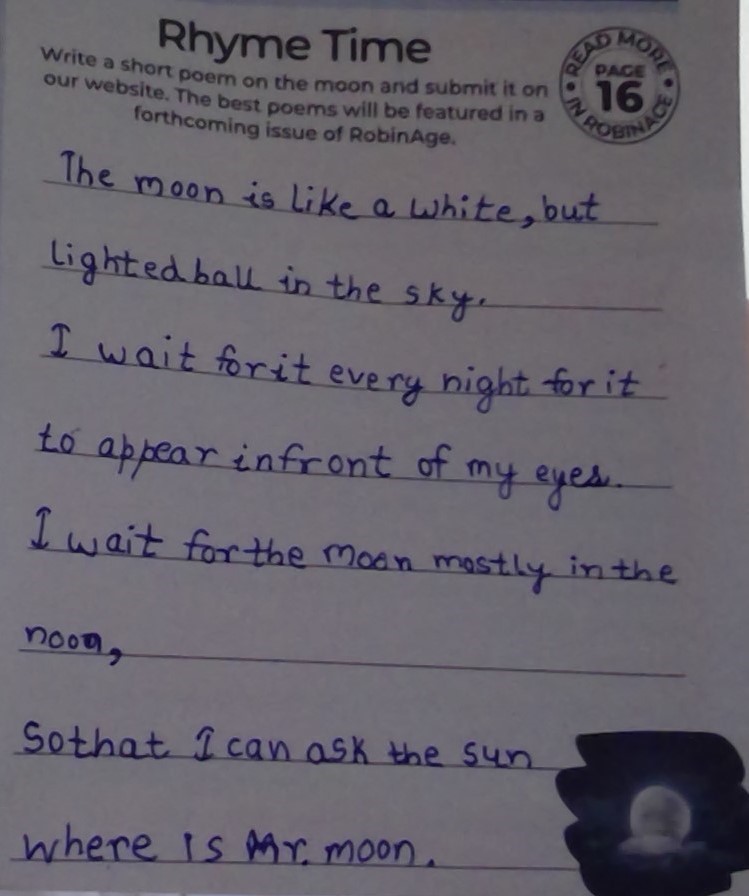 Rhyme Time
Write a short poem on the moon and submit it on
our website. The best poems will be featured in a
forthcoming issue of RobinAge.
READ MORE
PAGE
16
IN ROBINAGE
The moon is like a white, but
lighted ball in the sky.
I wait for it every night for it
to appear infront of my eyes.
I wait for the moon mostly in the
noon,
Sothat I can ask the sun
where is Mr. moon.